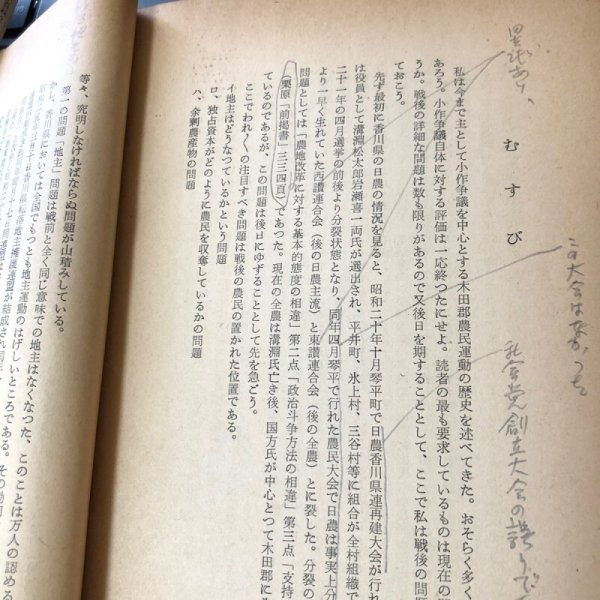 異議あり、
むすび
この大会はなかった
社会党創立大会の誤りで
私は今まで主として小作争議を中心とする木田郡農民運動の歴史を述べてきた。おそらく多く
あろう。小作争議自体に対する評価は一応終つたにせよ。読者の最も要求しているものは現在の
うか。戦後の詳細な問題は数も限りがあるので又後日を期することとして、ここで私は戦後の問
ておこう。
先ず最初に香川県の日農の情況を見ると、昭和二十年十月琴平町で日農香川県連再建大会が行れ
は役員として溝淵松太郎岩瀬喜一両氏が選出され、平井町、氷上村、三谷村等に組合が全村組織で
二十一年の四月選挙の前後より分裂状態となり、同年四月琴平で行れた農民大会で日農は事実上分
より一早く生れていた西讃連合会（後の日農主流）と東讃連合会（後の全農）とに裂した。分裂の
問題としては「農地改革に対する基本的態度の相違」第二点「政治斗争方法の相違」第三点「支持
（栗原「前掲書」三三四頁）であつた。現在の全農は溝淵氏亡き後、国方氏が中心とつて木田郡に
ているのであるが、この問題は後日にゆずることとして先を急ごう。
ここでわれ〳〵の注目すべき問題は戦後の農民の置かれた位置である。
イ地主はどうなつているかという問題
ロ、独占資本がどのように農民を収奪しているかの問題
ハ、余剰農産物の問題
等々、究明しなければならぬ問題が山積みしている。
第一の問題「地主」問題は戦前と全く同じ意味での地主はなくなつた、このことは万人の認める
かし、香川県においては全国でもつとも地主運動のはげしいところである。その動向